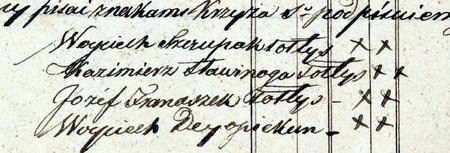 pisać znakami Krzyża S° podpisuiemy
Woyciech Szczupak Sołtys ++
Kazimierz Stawinoga Sołtys ++
Józef Banaszek Sołtys - ++
Woyciech Dey opiekun - ++